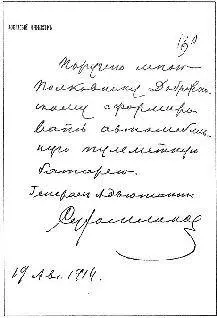 ВОЕННЫЙ МИНИСТРЪ
Поручено мною
Полковнику Добржан-
скому сформиро-
вать автомобиль-
ную пулеметную
батарею.
Генерал Адъютант
Сухомлинов
19 Ав. 1914.